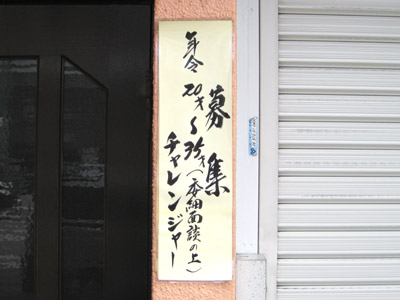 募集
年令 20才～35才(委細面談の上)
チャレンジャー